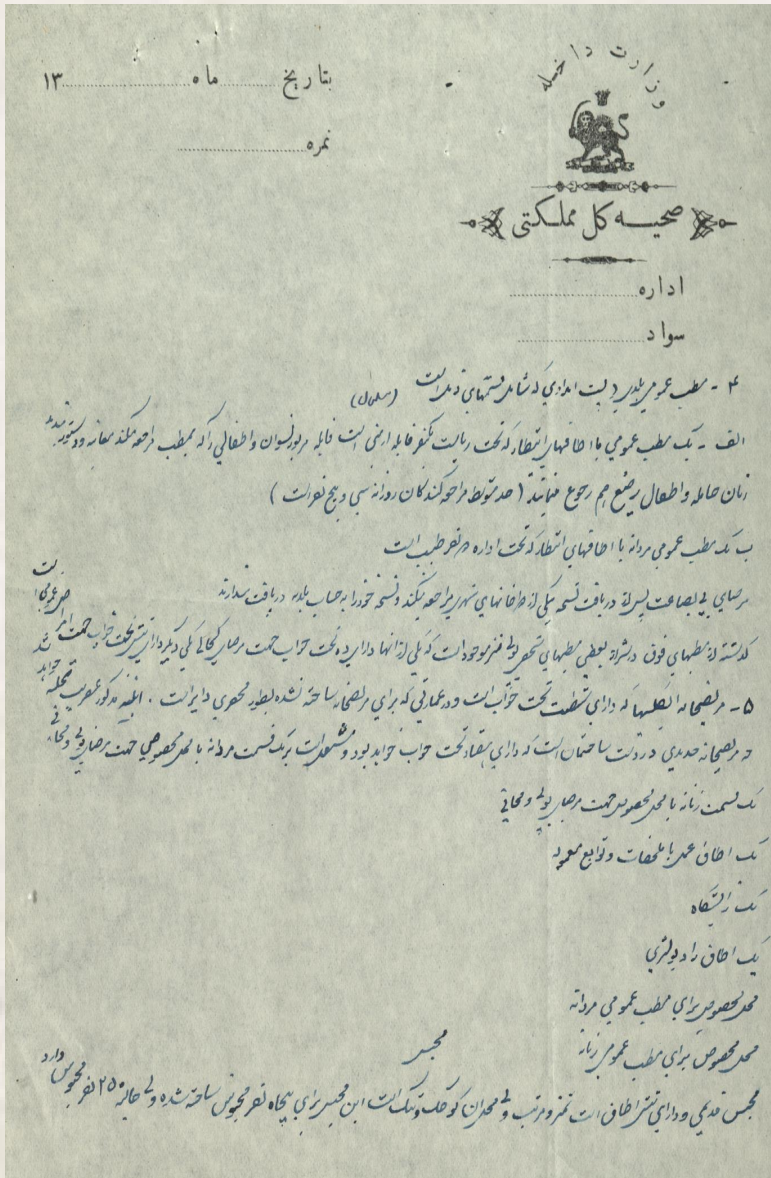 وزارت داخله
صحیه کل مملکتی
بتاریخ ماه ۱۳
نمره
اداره
سواد
۴ - مطب عمومی بلدی (پست امدادی که شامل قسمتهای ذیل است
الف - یک مطب عمومی با اطاقهای انتظار که تحت ریاست یکنفر قابله ارمنی است قابله مزبور نسوان و اطفالی را که بمطب مراجعه میکنند معاینه و دستور میدهد
زنان حامله و اطفال رضیع هم رجوع مینمایند (حد متوسط مراجعه کنندگان روزانه سی و پنج نفر است)
ب یک مطب عمومی مردانه با اطاقهای انتظار که تحت اداره دو نفر طبیب است
مرضای بی بضاعت پس از دریافت نسخه بیکی از دواخانهای شهر مراجعه میکنند و نسخه خود را به حساب بلدیه دریافت میدارند
گذشته از مطبهای فوق در شیراز بعضی مطبهای شخصی نیز موجود است که یکی از آنها دارای ده تخت خواب جهت مرضای یکی دیگر دارای شش تخت خواب جهت است
۵ - مریضخانه انگلیسها که دارای شصت تخت خواب است و در عمارتی که برای مریضخانه ساخته نشده بطور دایر است . ابنیه مذکور عنقریب تخلیه خواهد شد
چه مریضخانه جدیدی در دست ساختمان است که دارای هشتاد تخت خواب خواهد بود و مشتمل است بر یک قسمت مردانه با محل مخصوص جهت مرضای پولی و مجانی
یک قسمت زنانه با محل مخصوص جهت مرضای پولی و مجانی
یک اطاق عمل با ملحقات و توابع
یک زایشگاه
یک اطاق رادیولژی
محل مخصوص برای مطب عمومی مردانه
محل مخصوص برای مطب عمومی زنانه
محبس
محبس قدیمی و دارای شش اطاق است تمیز و مرتب ولی محل آن کوچک و تنگ است این محبس برای پنجاه نفر محبوس ساخته شده ولی حالیه ۲۵۰ نفر محبوس دارد